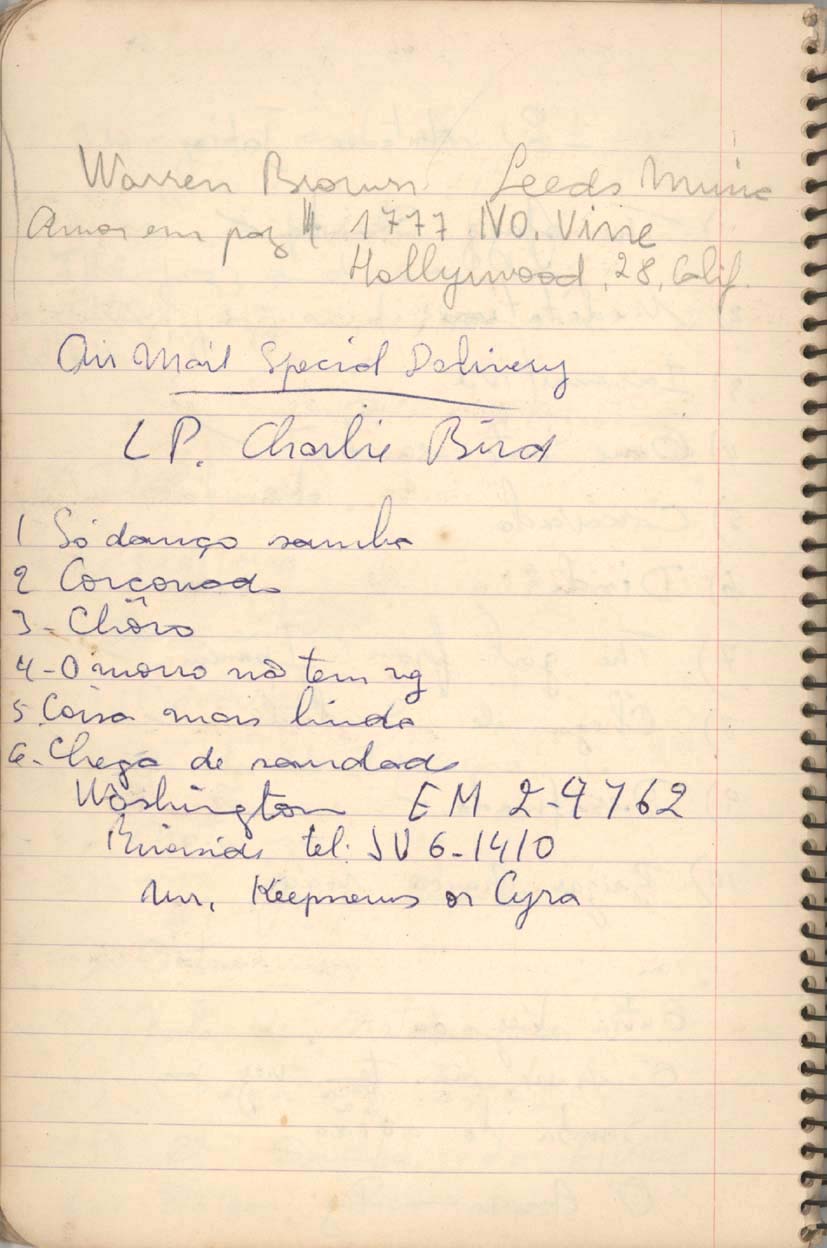 Warren Brown Leeds Music
Amor em paz 1777 NO. Vine
Hollywood, 28, Calif.
Air Mail Special Delivery
LP. Charlie Bird
1 Só danço samba
2 Corcovado
3 - Chôro
4 - O morro não tem vez
5. Coisa mais linda
6 - Chega de saudade
Washington EM 2-4762
Riverside tel: JU 6-1410
Mr. Keepnews or Cyra